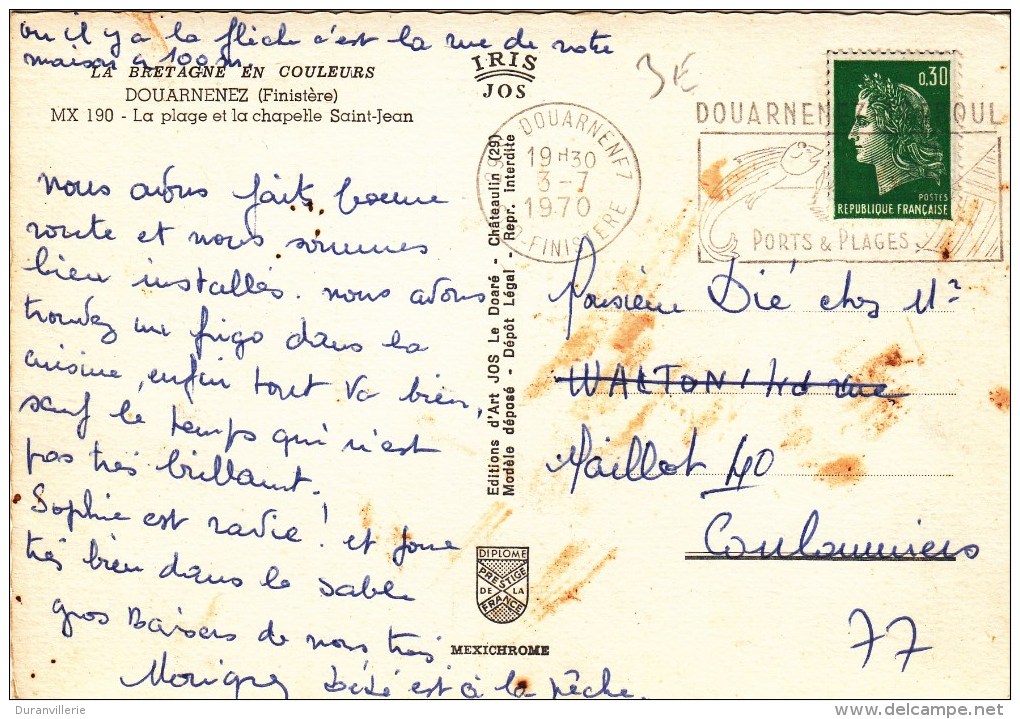 ou il y a la flèche c'est la rue de notre
maison a 100 m.
LA BRETAGNE EN COULEURS
DOUARNENEZ (Finistère)
MX 190 - La plage et la chapelle Saint-Jean
nous avons faits bonne
route et nous sommes
bien installés. nous avons
trouvez un frigo dans la
cuisine, enfin tout va bien,
sauf le temps qui n'est
pas très brillant.
Sophie est ravie! et joue
très bien dans le sable
gros Baisers de nous trois
Dédé est à la pêche.
IRIS
JOS
Editions d'Art JOS Le Doaré - Châteaulin (29)
Modèle déposé - Dépôt Légal - Repr. Interdite
DIPLOME
PRESTIGE
DE LA
FRANCE
MEXICHROME
3€
DOUARNENEZ
19H30
3-7
1970
FINISTERE
DOUARNENEZ
PORTS & PLAGES
0,30
POSTES
REPUBLIQUE FRANÇAISE
Monsieur Dié chez Mr
WALTON rue
Maillot 40
Coulommiers
77
Duranvillerie
delcampe.net